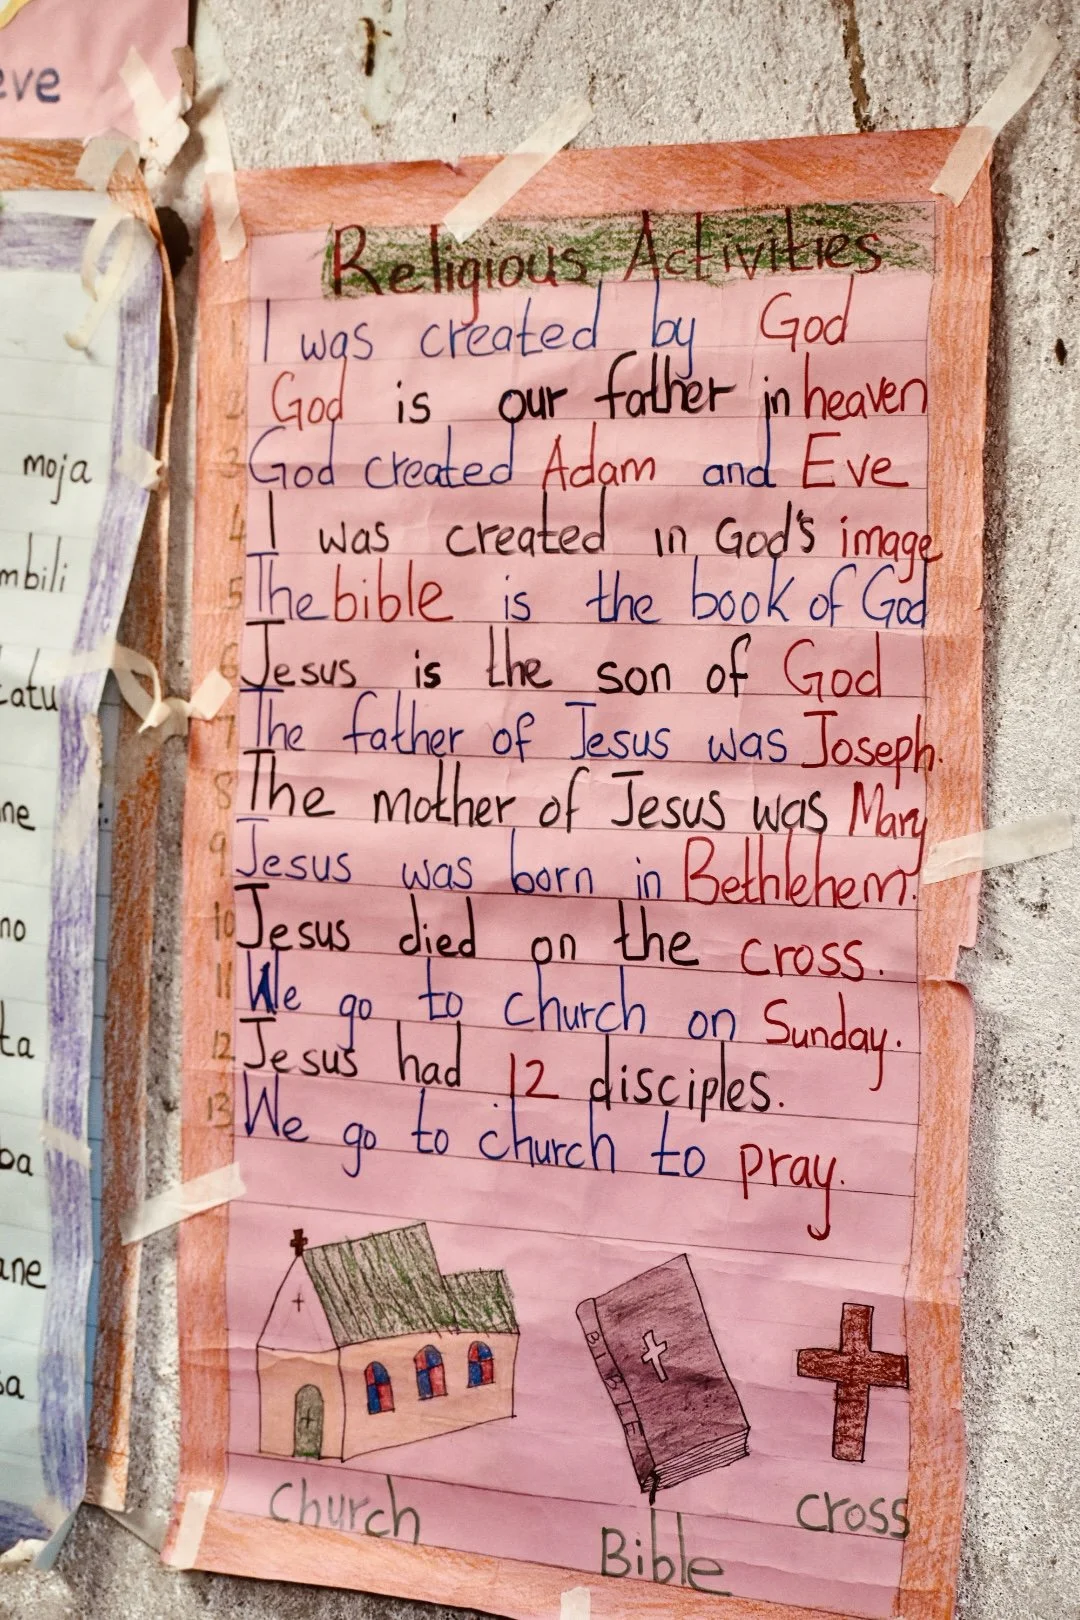 eve
moja
mbili
tatu
ne
no
ta
ba
ane
sa
Religious Activities
1 I was created by God
2 God is our father in heaven
3 God created Adam and Eve
4 I was created in God's image
5 The bible is the book of God
6 Jesus is the son of God
7 The father of Jesus was Joseph.
8 The mother of Jesus was Mary
9 Jesus was born in Bethlehem.
10 Jesus died on the cross.
11 We go to church on Sunday.
12 Jesus had 12 disciples.
13 We go to church to pray.
BIBLE
Church
Bible
cross